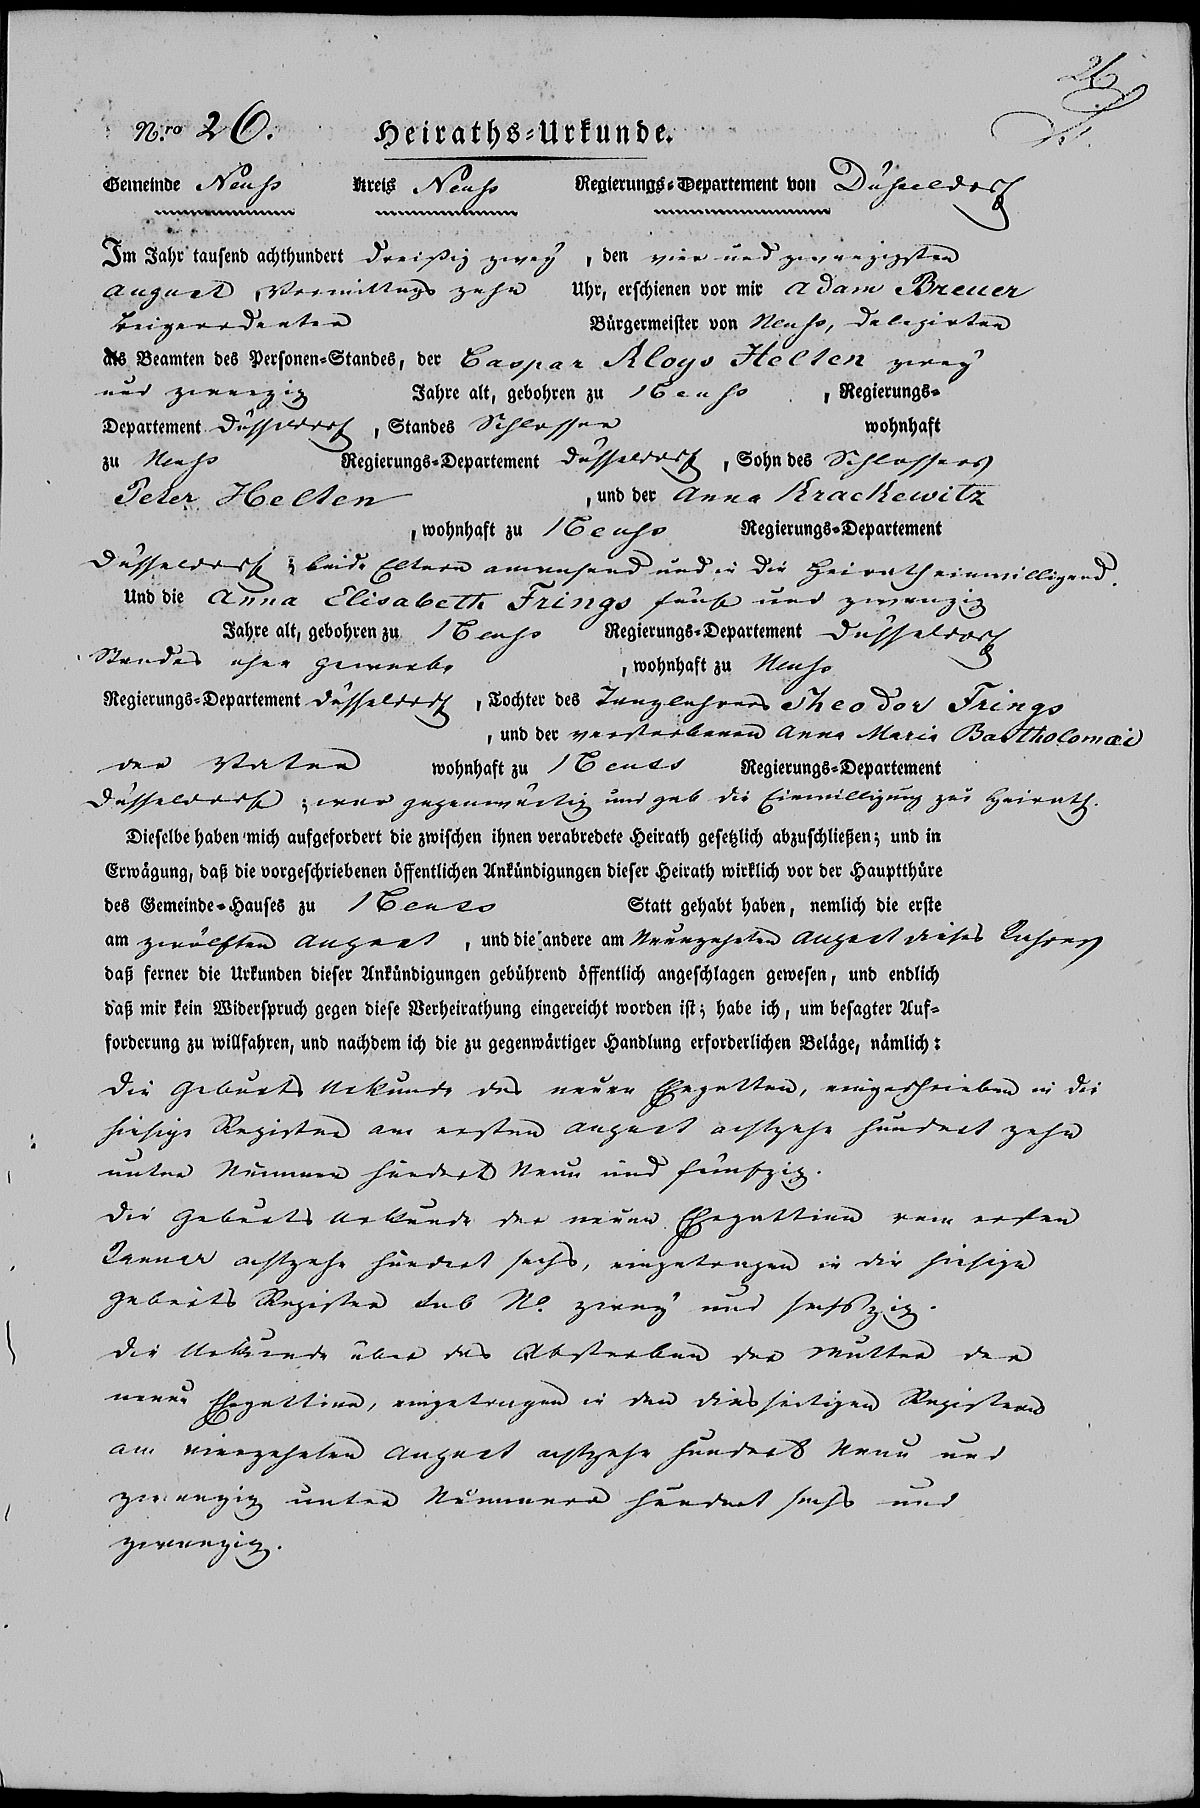 26
Nro 26. Heiraths-Urkunde.
Gemeinde Neuß Kreis Neuß Regierungs-Departement von Düsseldorf
Im Jahr tausend achthundert dreißig zwey, den vier und zwanzigsten
August, Vormittags zehn Uhr, erschienen vor mir Adam Breuer
beigeordneten Bürgermeister von Neuß, delegirten
als Beamten des Personen-Standes, der Caspar Aloys Helten zwey
und zwanzig Jahre alt, gebohren zu Neuß, Regierungs-
Departement Düsseldorf, Standes Schlosser wohnhaft
zu Neuß Regierungs-Departement Düsseldorf, Sohn des Schlossers
Peter Helten, und der Anna Krackewitz
, wohnhaft zu Neuß Regierungs-Departement
Düsseldorf; beide Eltern anwesend und in die Heirath einwilligend.
Und die Anna Elisabeth Frings fünf und zwanzig
Jahre alt, gebohren zu Neuß Regierungs-Departement Düsseldorf
Standes ohne Gewerbe, wohnhaft zu Neuß
Regierungs-Departement Düsseldorf, Tochter des Tanzlehrers Theodor Frings
, und der verstorbenen Anna Maria Bartholomæi
der Vater wohnhaft zu Neuss Regierungs-Departement
Düsseldorf; war gegenwärtig und gab die Einwilligung zur Heirath.
Dieselbe haben mich aufgefordert die zwischen ihnen verabredete Heirath gesetzlich abzuschließen; und in
Erwägung, daß die vorgeschriebenen öffentlichen Ankündigungen dieser Heirath wirklich vor der Hauptthüre
des Gemeinde-Hauses zu Neuss Statt gehabt haben, nemlich die erste
am zwölften August, und die andere am Neunzehnten August dieses Jahres
daß ferner die Urkunden dieser Ankündigungen gebührend öffentlich angeschlagen gewesen, und endlich
daß mir kein Widerspruch gegen diese Verheirathung eingereicht worden ist; habe ich, um besagter Auf-
forderung zu willfahren, und nachdem ich die zu gegenwärtiger Handlung erforderlichen Beläge, nämlich:
Die Geburts Urkunde des neuen Ehegatten, eingeschrieben in die
hiesige Register am ersten August achtzehn hundert zehn
unter Nummer hundert Neun und fünfzig.
Die Geburts Urkunde der neuen Ehegattinn vom ersten
Januar achtzehn hundert sechs, eingetragen in die hiesige
Geburts Register sub No. zwey und sechszig.
Die Urkunde über das Absterben der Mutter der
neuen Ehegattinn, eingetragen in den diesseitigen Registern
am vierzehnten August achtzehn hundert Neun und
zwanzig unter Nummer hundert sechs und
zwanzig.